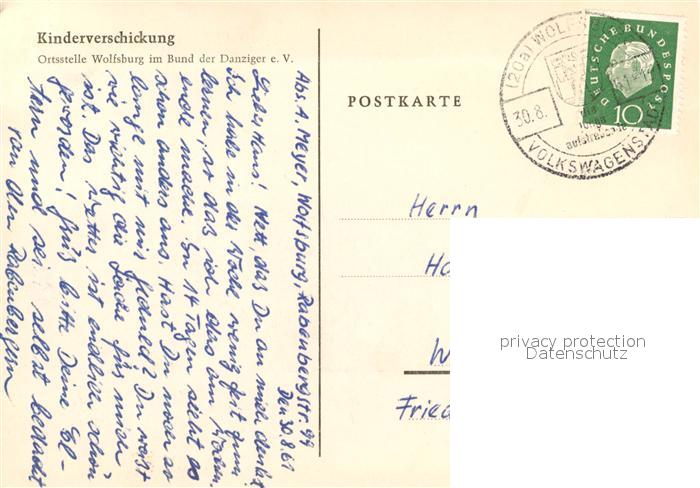 Kinderverschickung
Ortsstelle Wolfsburg im Bund der Danziger e. V.
Abs. A. Meyer, Wolfsburg, Rabenbergstr. 49
Den 30.8.61
Lieber Hans! Nett, das Du an mich denkst.
Ich habe in der Woche wenig Zeit zum
lernen, so das ich das am Wochen-
ende mache. In 14 Tagen sieht es
schon anders aus. Hast Du noch so
lange mit mir Geduld? Du weißt
wie wichtig die Sache für mich
ist. Das Wetter ist endlich schön
geworden! Grüß bitte Deine El-
tern und sei selbst bedacht
von den Rabenbergern
POSTKARTE
(20a) WOLFSBURG
30.8.
aufstrebende
VOLKSWAGENSTADT
DEUTSCHE BUNDESPOST
10
Herrn
Ha
W
Fried
privacy protection
Datenschutz